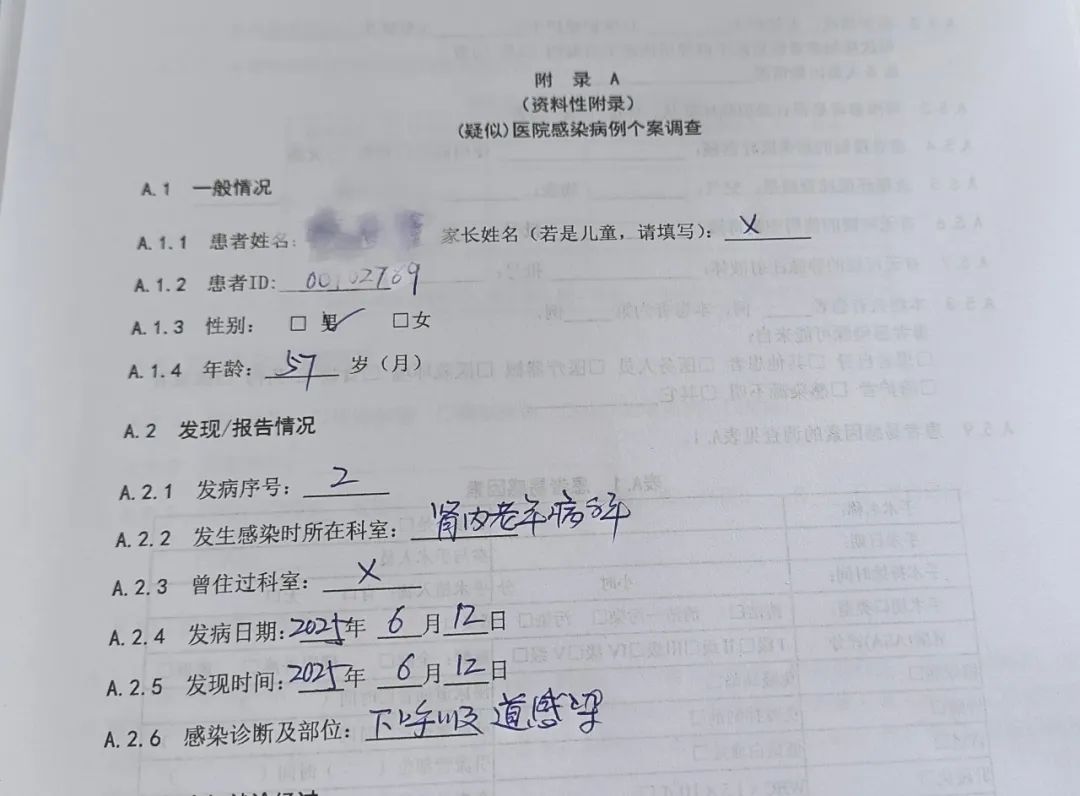 附 录 A
(资料性附录)
(疑似)医院感染病例个案调查
A.1 一般情况
A.1.1 患者姓名: 家长姓名(若是儿童,请填写): X
A.1.2 患者ID: 00102789
A.1.3 性别: □ 男✓ □女
A.1.4 年龄: 57 岁(月)
A.2 发现/报告情况
A.2.1 发病序号: 2
A.2.2 发生感染时所在科室: 肾内老年病科
A.2.3 曾住过科室: X
A.2.4 发病日期: 2025年 6 月 12 日
A.2.5 发现时间: 2025年 6 月 12 日
A.2.6 感染诊断及部位: 下呼吸道感染